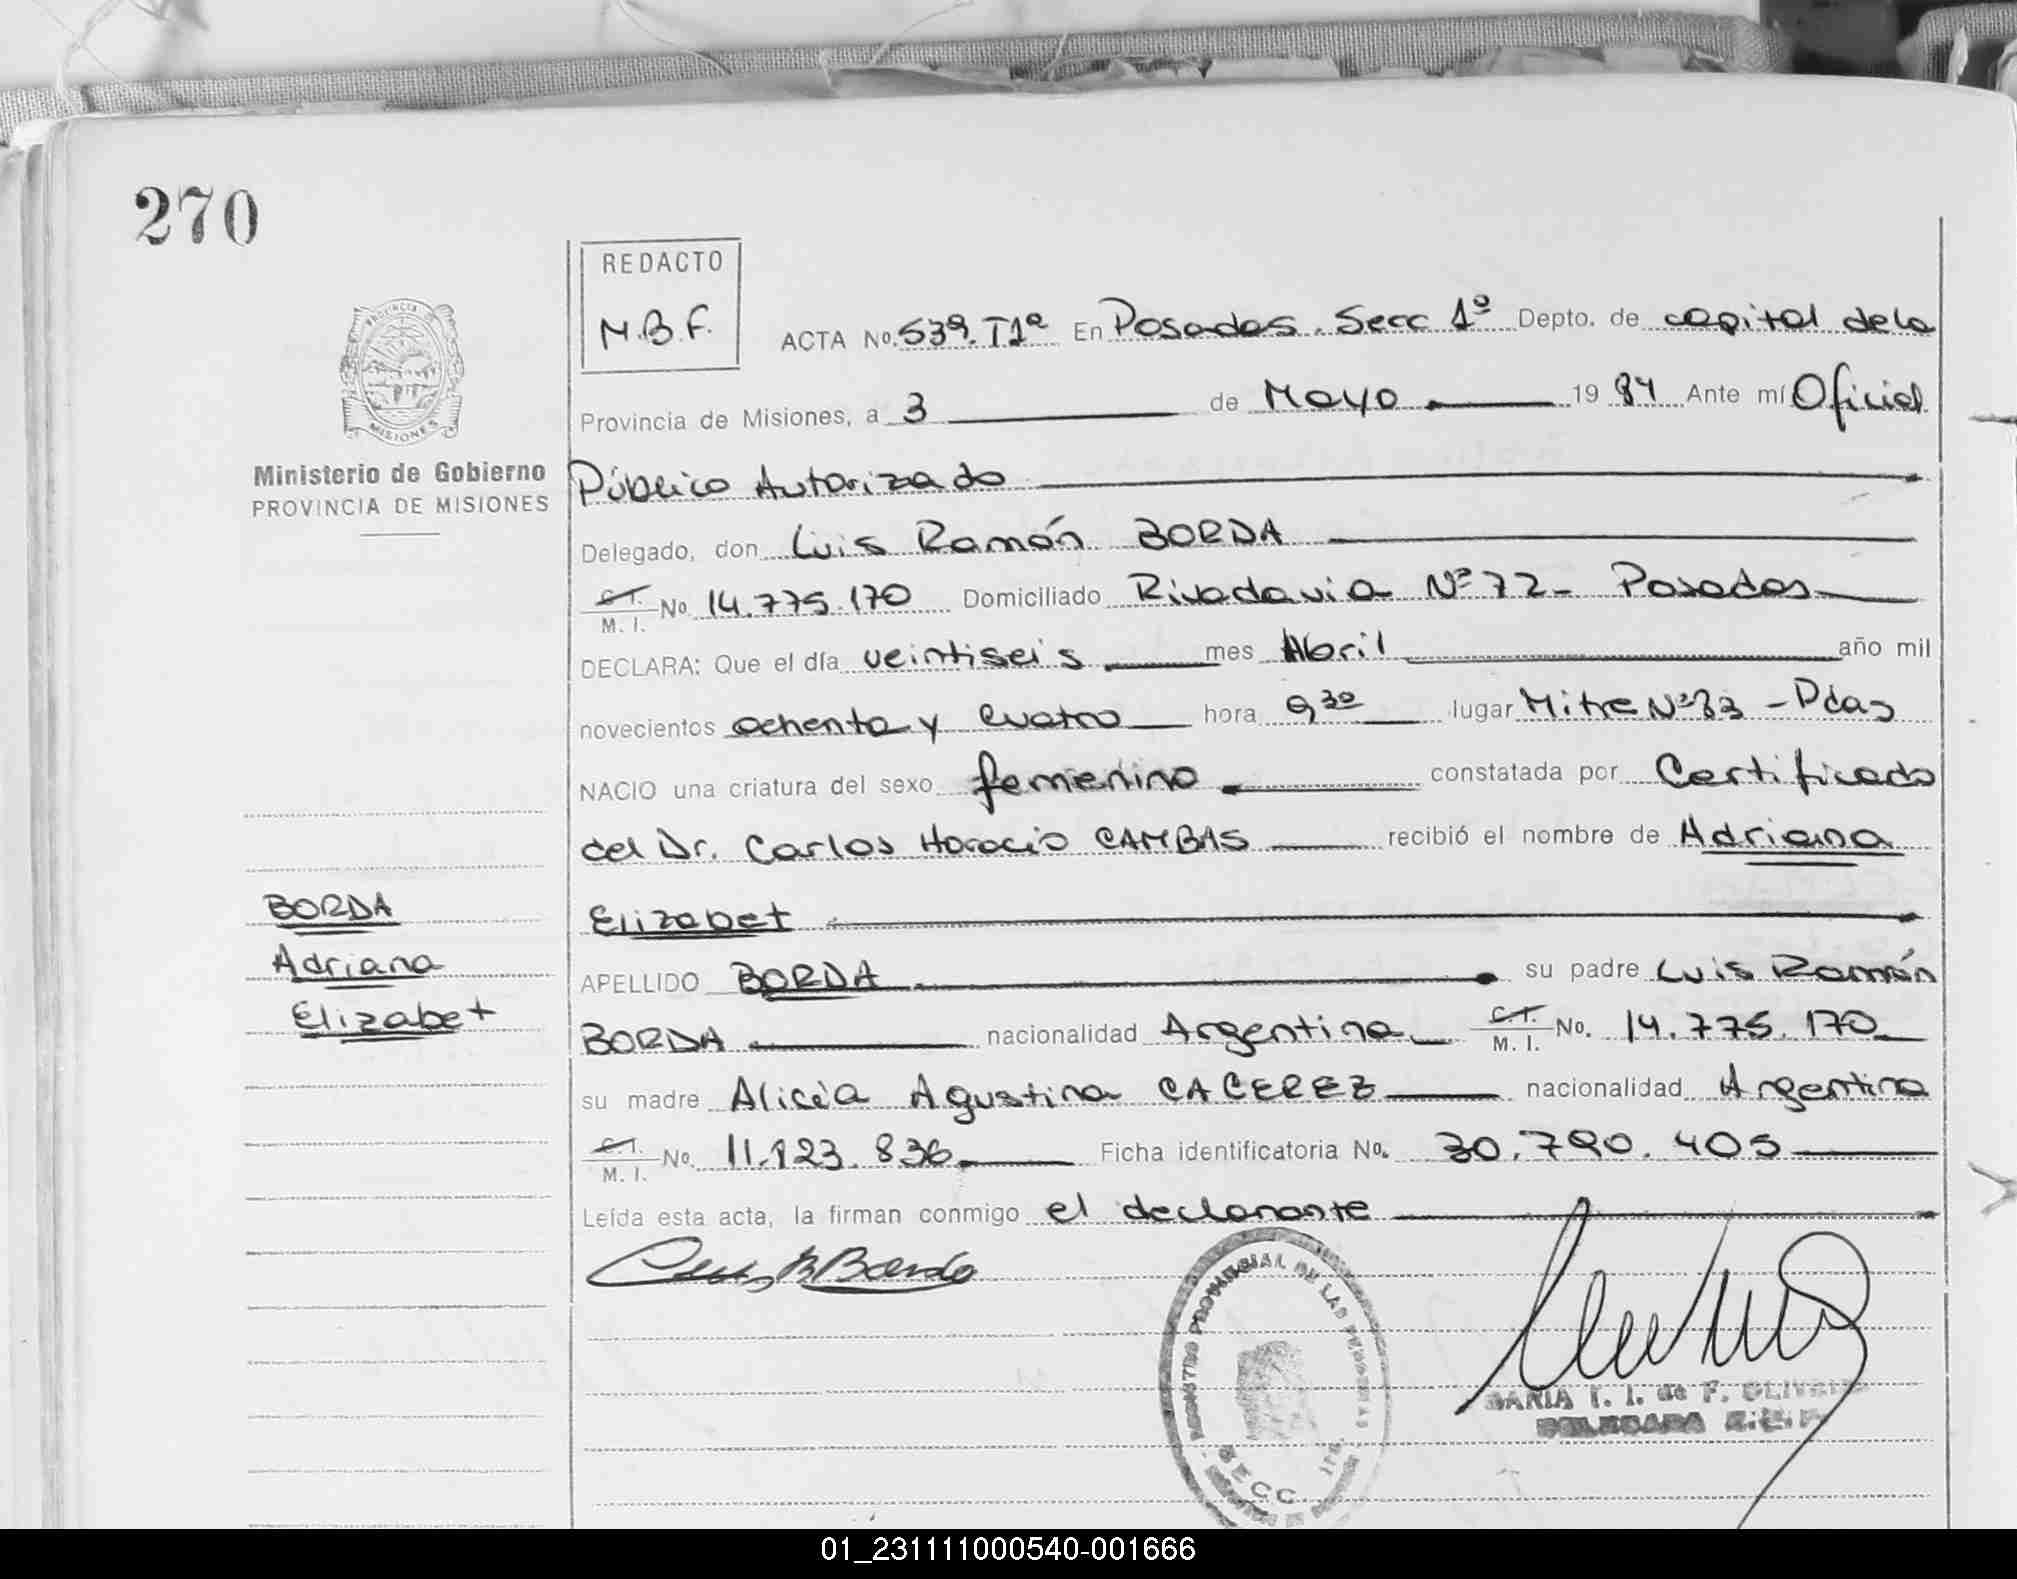 270
REDACTO
M.B.F.
ACTA No. 539. T1ª En Posadas. Secc 1º Depto. de capital de la
Provincia de Misiones, a 3 de Mayo 1984 Ante mí Oficial
Ministerio de Gobierno
PROVINCIA DE MISIONES
Público Autorizado
Delegado, don Luis Ramón BORDA
C.I. M. I. No 14.775.170 Domiciliado Rivadavia Nº 72- Posadas
DECLARA: Que el día veintiseis mes Abril año mil
novecientos ochenta y cuatro hora 9 30 lugar Mitre Nº 83 - Pdas
NACIO una criatura del sexo femenino constatada por Certificado
del Dr. Carlos Horacio CAMBAS recibió el nombre de Adriana
Elizabet
BORDA
Adriana
Elizabet
APELLIDO BORDA su padre Luis Ramón
BORDA nacionalidad Argentina C.I. M. I. No. 14.775.170
su madre Alicia Agustina CACEREZ nacionalidad Argentina
C.I. M. I. No. 11.123.836 Ficha identificatoria No. 30.790.405
Leída esta acta, la firman conmigo el declarante
REGISTRO PROVINCIAL DE LAS PERSONAS
SECC. 1ra.
MARIA T. I. de F.
DELEGADA
01_231111000540-001666